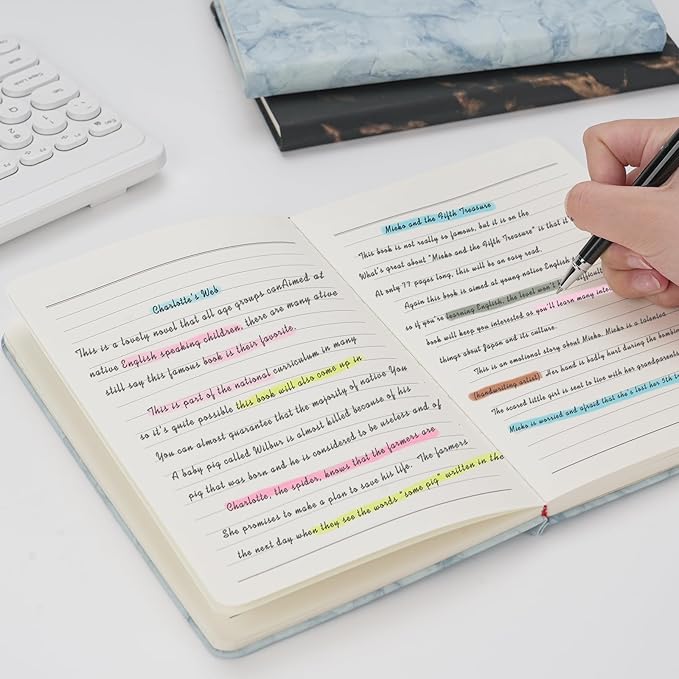 Charlotte's Web
This is a lovely novel that all age groups canAimed at
native English speaking children, there are many ative
still say this famous book is their favorite.
This is part of the national curriculum in many
so it's quite possible this book will also come up in
You can almost guarantee that the majority of native You
A baby pig called Wilbur is almost billed because of his
pig that was born and he is considered to be useless and of
Charlotte, the spider, knows that the farmers are
She promises to make a plan to save his life. The farmers
the next day when they see the words "some pig" written in the
Mieko and the Gifth Treasure
This book is not really so famous, but it is on the
What's great about "Mieko and the Gifth Treasure" is that it
At only 77 pages long, this will be an easy read.
Again this book is aimed at young native English
so if you're learning English, the level won't
book will keep you interested as you'll learn many inter
things about Japan and its culture.
This is an emotional story about Mieko. Mieko is a talented
(handwriting artist). Her hand is badly hurt during the bombin
The scared little girl is sent to live with her grandparents
Mieko is worried and afraid that she's lost her 5th tr
Caps Lock
Shift
Esc